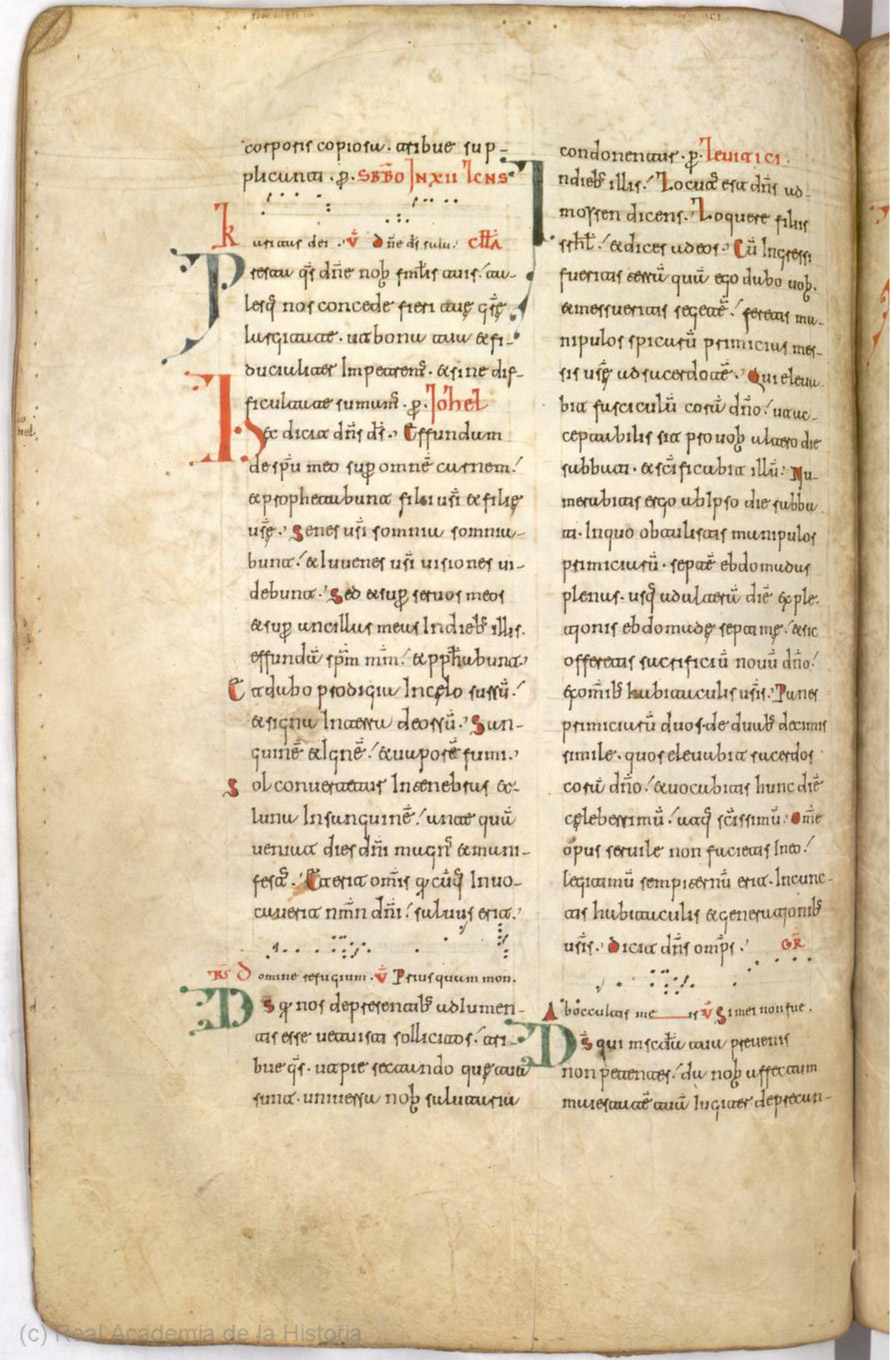 corporis copiosa. atribue sup-
plicanti. ꝑ. SBBO IN XII LCNS
Karitas dei. v̄ Dn̄e ds̄ salu. CTLA
Presta q̄s dn̄e nob fml̄is tuis. ta-
lesq nos concede fieri tue gr̄e
largitati. ut bona tua & fi-
ducialiter Impetrem. & sine dif-
ficultate sumam. ꝑ. Iohel
Hec dicit dn̄s ds̄. Effundam
de spū meo sup omnē carnem.
& prophetabunt filii ur̄i & filie
ur̄e. Senes ur̄i somnia somnia-
bunt. & Iuvenes ur̄i visiones vi-
debunt. Sed & sup servos meos
& sup ancillas meas Indieb illis.
effundā spm̄ mm̄. & pphabunt.
Et dabo prodigia In celo sursū.
& signa Interra deorsū. San-
guinē & Ignē. & vaporē fumi.
Sol convertetur Intenebras &
luna Insanguinē. antequā
veniat dies dn̄i magn & mani-
fest. Et erit omīs qcūq Invo-
caverit nmn dn̄i. salvus erit.
RS Domine refugium. v̄ Priusquam mon.
Ds q nos depresentib ad lumen-
tis esse
bue q̄s. ut pie sectando que tua
sunt. universa nob salutaria
condonentur. ꝑ. Levitici.
Indieb illis. Locut est dn̄s ad
moysen dicens. Loquere filiis
isrl̄. & dices ad eos. Cū Ingressi
fueritis terrā quā ego dabo vob.
& messueritis segetē. feretis ma-
nipulos spicarū primicias mes-
sis ur̄e ad sacerdotē. Qui eleva-
bit fasciculū corā dn̄o. ut ac-
ceptabilis sit pro vob altero die
sabbati. & sc̄ificabit illū. Nu-
merabitis ergo ab Ipso die sabba-
ti. Inquo obtulistis manipulos
primiciarū. septē ebdomadas
plenas. usq ad alterā diē exple-
tionis ebdomade septime. & sic
offeretis sacrificiū novū dn̄o.
exomīb habitaculis ur̄is. Panes
primiciarū duos. de duab decimis
simile. quos elevabit sacerdos
corā dn̄o. & vocabitis hunc diē
celeberrimū. atq sc̄issimū. Om̄e
opus servile non facietis Ineo.
legitimū sempiternū erit. Incunc-
tis habitaculis & generationib
ur̄is. Dicit dn̄s omps̄. GR̄
Ab occultis me is v̄ Si mei non fue.
Ds̄ qui tua prevenis
non petentes. da nob affectum
maiestatē tuā Iugiter deprecan-